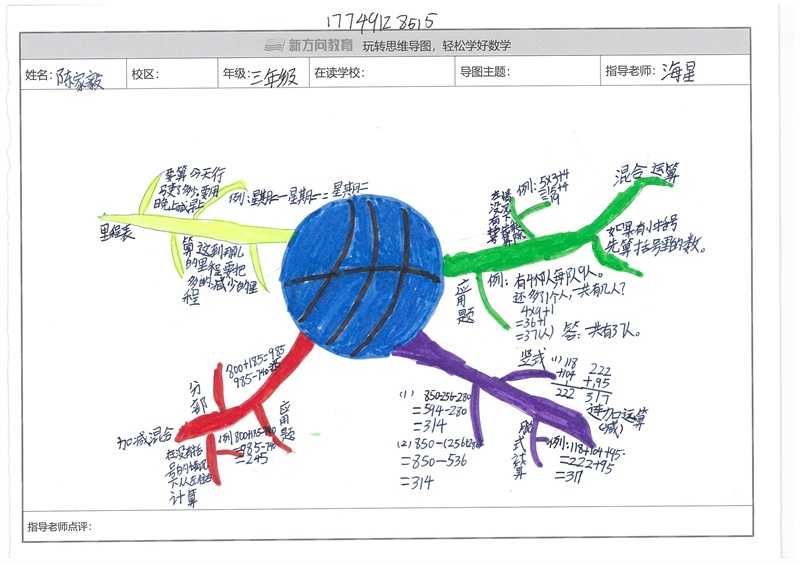 17749128515
新方向教育 玩转思维导图，轻松学好数学
姓名：陈家毅 校区： 年级：三年级 在读学校： 导图主题： 指导老师：海星
要算今天行
驶了多少，要用
晚上减早上
例：星期一 星期二 星期二
里程表
算这到哪儿
的里程要把
多的减少的里
程
混合运算
例：5×3+4
=15+4
=19
如果有小括号
先算括号里的数。
应用题
例：有4队每队9人。
还多了1个人，共有几人？
4×9+1
=36+1
=37(人) 答：共有37人。
分部
800+185=985
985-740
加减混合
应用题
例 800+185-740
=985-740
=245
在没有括
号的情况
下从左往右
计算
竖式
(1) 118
+104
222
222
+95
317
进加运算
(减)
脱式计算
例：118+104+95
=222+95
=317
(1) 850-256-280
=594-280
=314
(2) 850-(256+280)
=850-536
=314
指导老师点评：